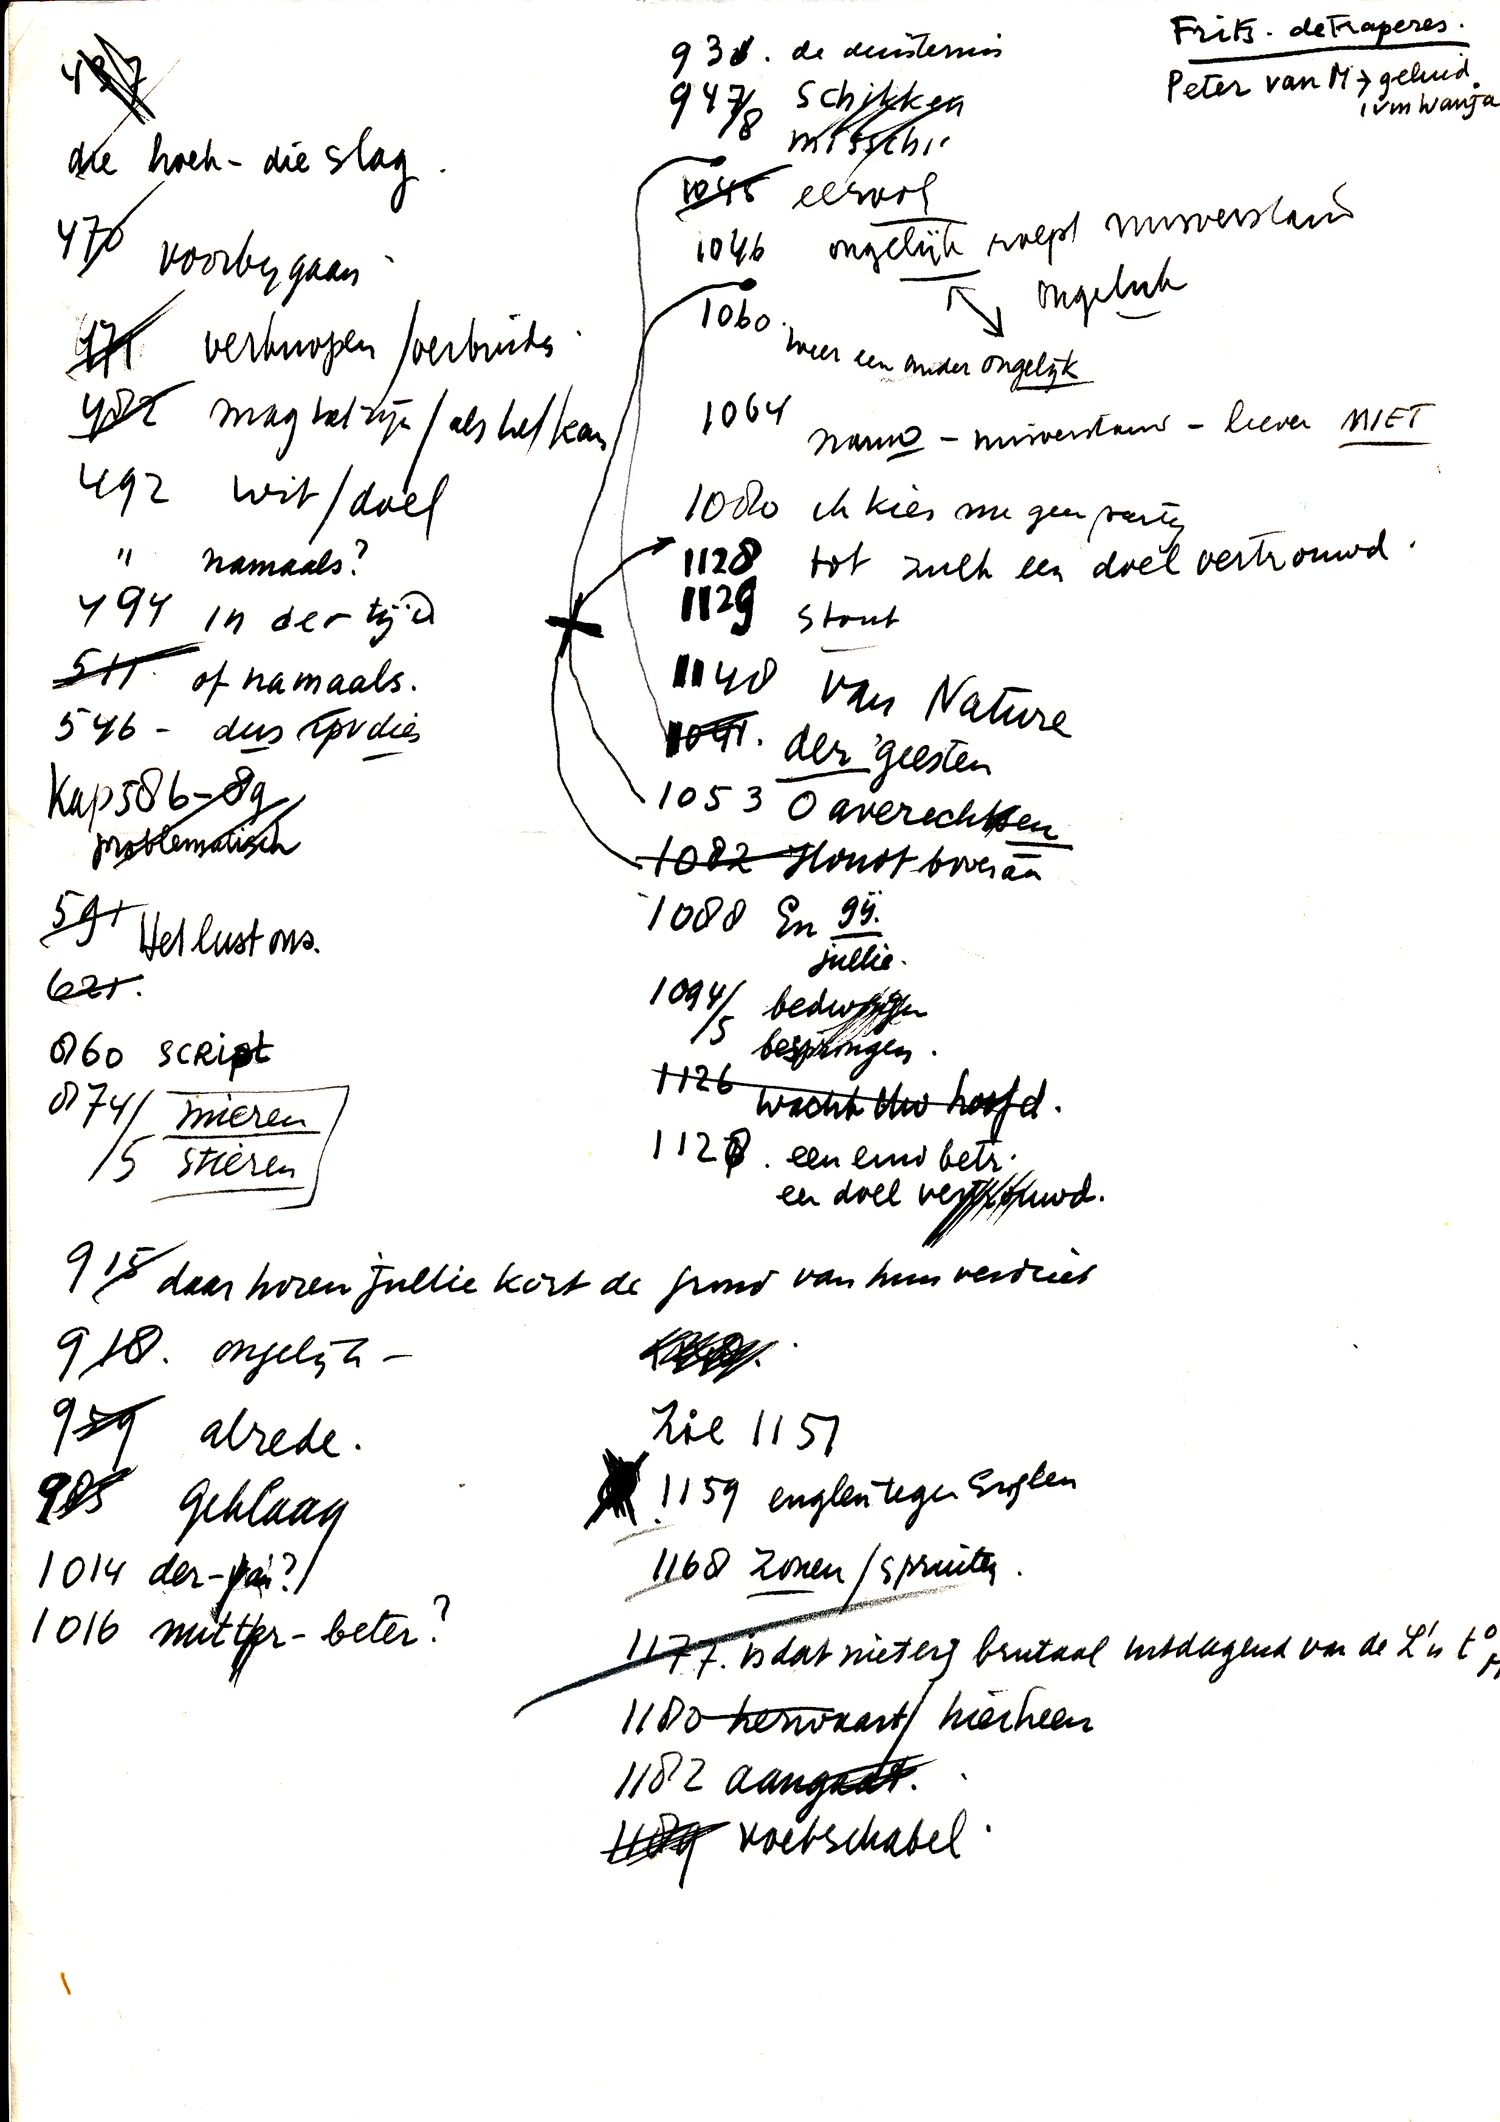 437
die hoek - die slag.
470 voorbygaan
471 verknopen / verbinden
482 mag het zijn / als het kan
492 wit / doel
" namaals?
494 in der tijd
511. of namaals.
546 - dus dies
Kap 586-89
problematisch
591 Het lust ons.
621.
860 SCRIpt
874/5 mieren
stieren
915 daar horen jullie kort de grond van hun verdriet
918. ongelijk -
959 alrede.
985 Geklaag
1014 der- ?
1016 - beter?
Frits. de traperes.
Peter van M → geluid.
ivm Wanja
93 . de duisternis
947/8 Schikken
misschi.
1045 eervol
1046 ongelijk roept misverstand
ongeluk
1060. weer een ander ongelijk
1064 - misverstand - liever NIET
1080 ik kies me geen partij
1128 tot zulk een doel vertrouwd.
1129 stout
1140 van Nature
1041. der geesten
1053 O averechtsen
1082 Houdt bovenaan
1088 En gij.
jullie.
1094/5 bedwingen
bespringen.
1126 wacht Uw hoofd.
1128. een eind betr.
een doel vertrouwd.
Zie 1157
1159 englen tegen Englen
1168 zonen / spruiten.
1177. is dat niet erg brutaal uitdagend van de L's t.o.
1180 herwaart / hierheen
1182 aangaat.
1189 voetschabel.